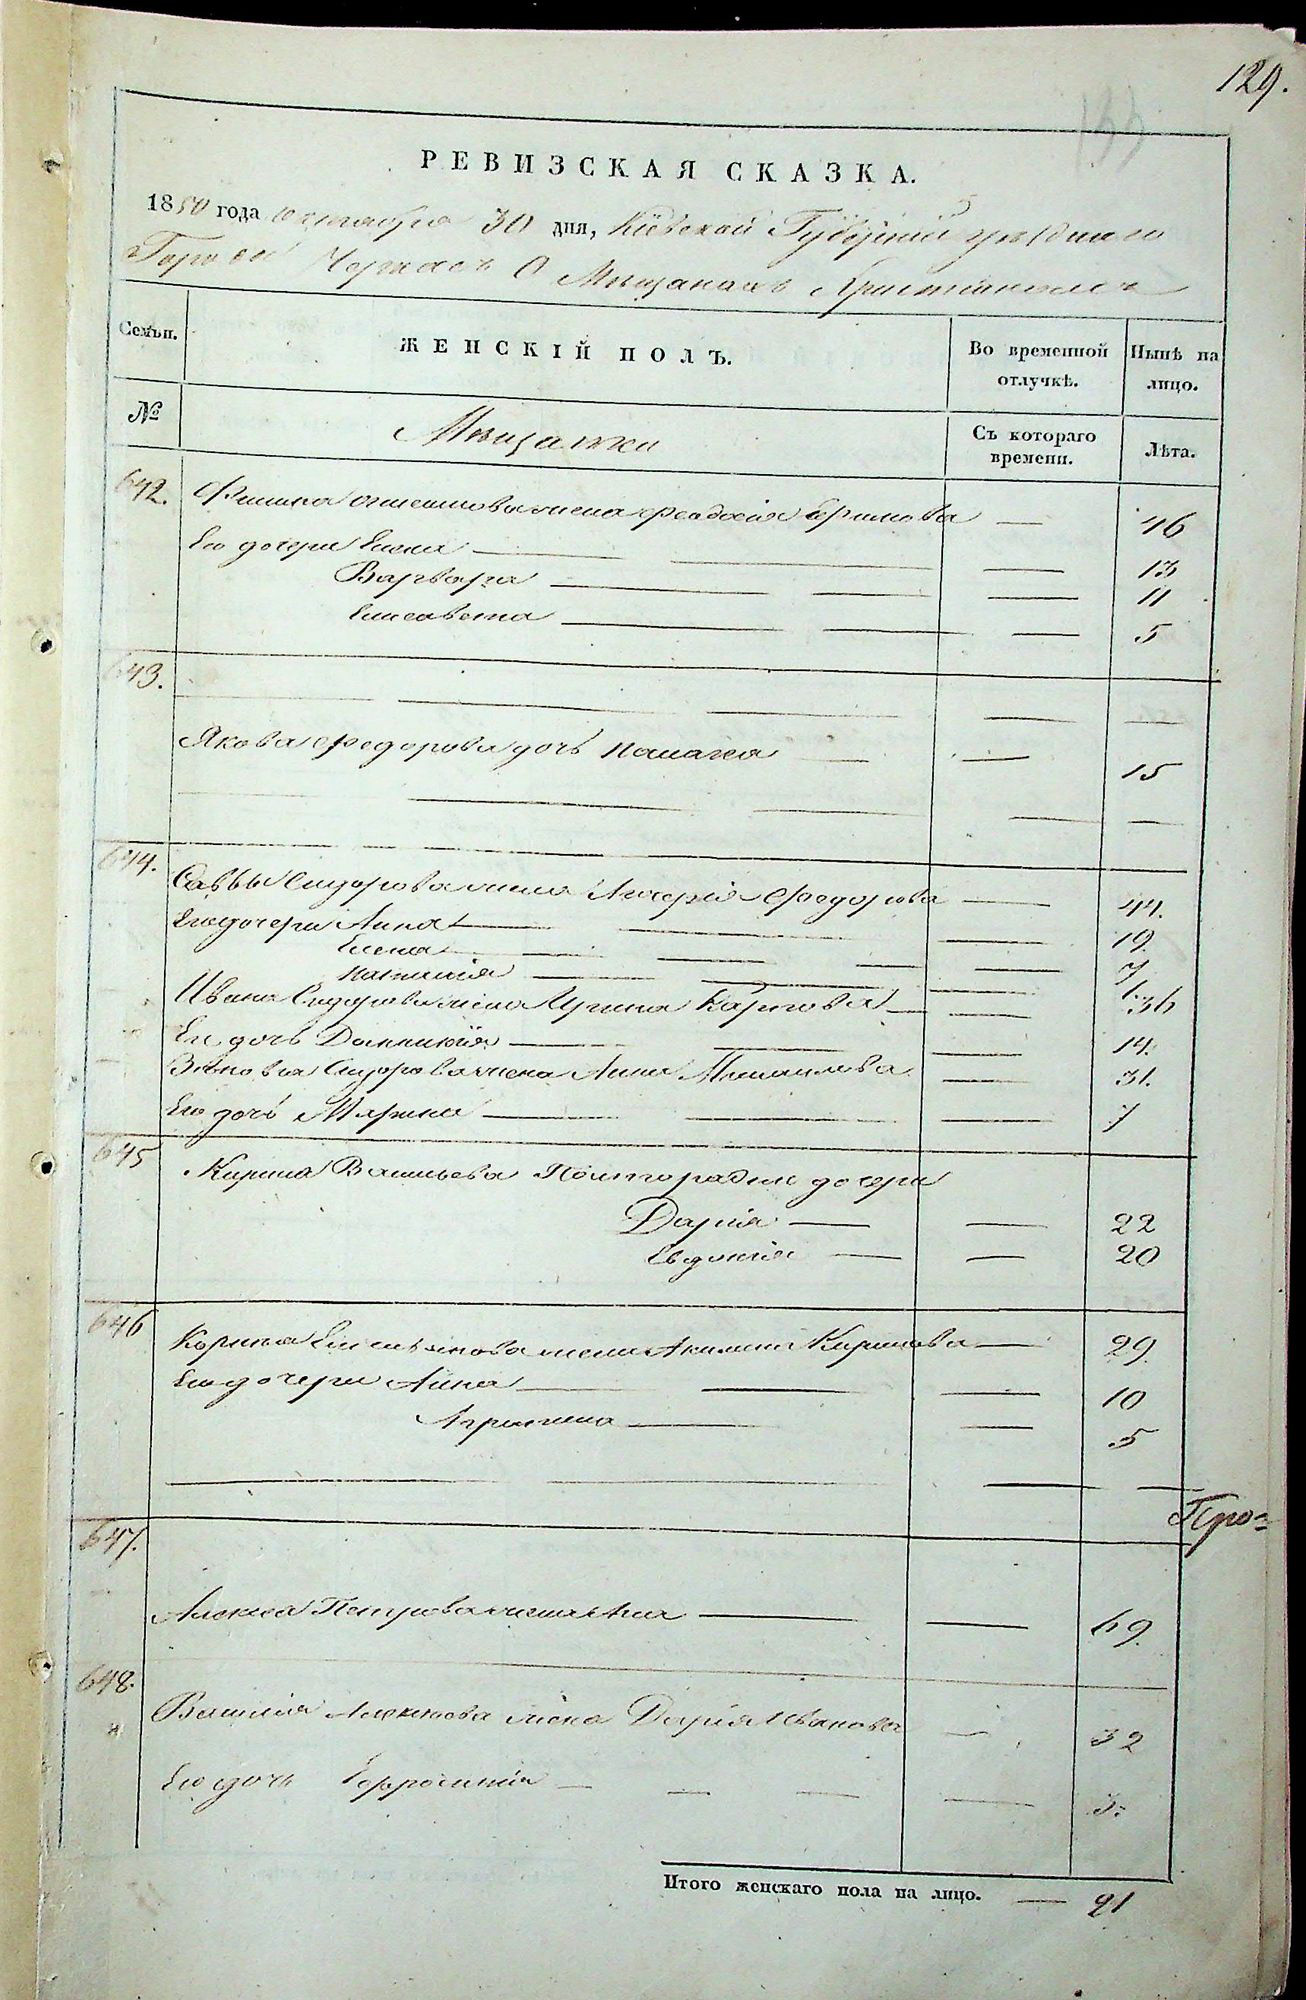 129.
133
РЕВИЗСКАЯ СКАЗКА.
1850 года октября 30 дня, Кіевской Губерніи уезднаго
Города Черкасъ О Мещанахъ Христіанахъ
Семьи. ЖЕНСКІЙ ПОЛЪ. Во временной отлучкѣ. Нынѣ на лицо.
№ Мещанки Съ котораго времени. Лѣта.
642. жена Феодосія 46
Его дочери Елена 13
Варвара 11
Елисавета 5
643.
Якова Федорова дочь Палагея 15
644. Саввы Сидорова жена Федорова 44.
Его дочери Анна 19
Елена 7
Наталія 1.
Ивана Сидорова жена Ирина Карпова 36
Его дочь Домникія 14.
Зѣновія Сидорова жена Анна Михайлова 31.
Его дочь Марина 7
645 Кирила Васильева дочери
Дарія 22
Евдокія 20
646 Корнея Емельянова жена Акилина Кирилова 29.
Его дочери Анна 10
Агрипина 5
Про=
647.
Алексея Петрова жена Анна 69.
648. Василія Алексеева жена Дарія Иванова 32
Его дочь Ефросинія 3.
Итого женскаго пола на лицо. — 21